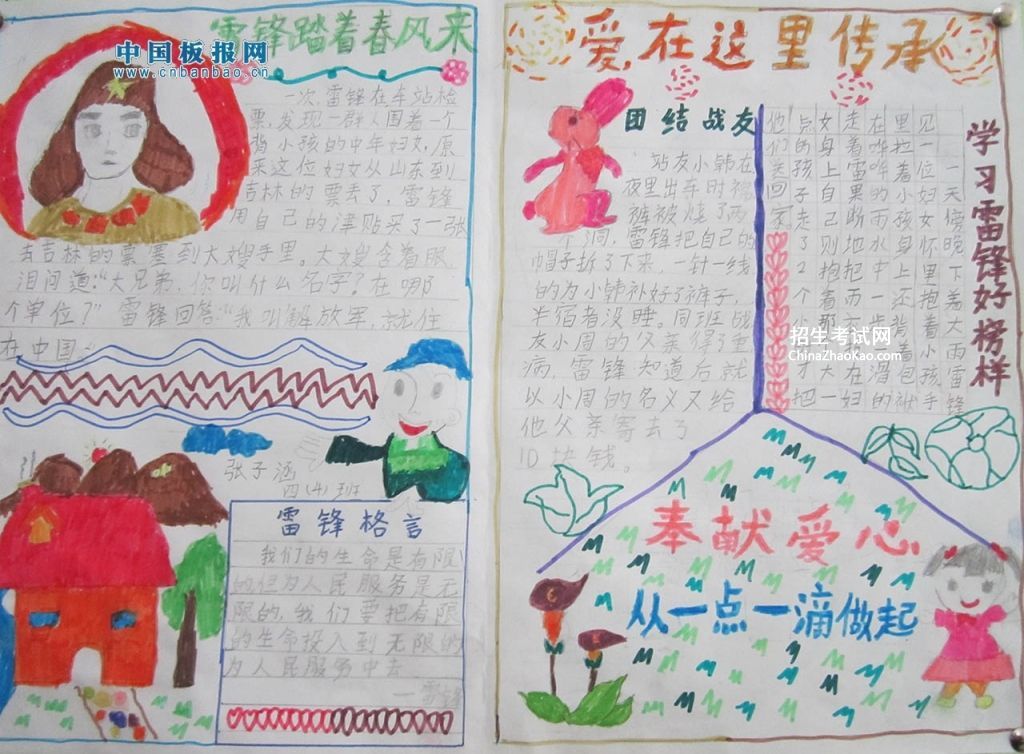 中国板报网
www.cnbanbao.cn
雷锋踏着春风来
一次,雷锋在车站检
票,发现一群人围着一个
背小孩的中年妇女,原
来这位妇女从山东到
吉林的票丢了,雷锋
用自己的津贴买了一张
去吉林的票塞到大嫂手里,大嫂含着眼
泪问道:“大兄弟,你叫什么名字?在哪
个单位?”雷锋回答:“我叫解放军,就住
在中国。”
张子涵
四(4)班
雷锋格言
我们的生命是有限
的但为人民服务是无
限的,我们要把有限
的生命投入到无限的
为人民服务中去
—雷锋
爱在这里传承
团结战友
站友小韩在
夜里出车时裤
裤被烧了两
个洞,雷锋把自己的
帽子拆了下来,一针一线
的为小韩补好了裤子,
半宿者没睡。同班战
友小周的父亲得了重
病,雷锋知道后就
以小周的名义又给
他父亲寄去了
10块钱。
学习雷锋好榜样
一天傍晚下着大雨雷锋
见一位妇女怀里抱着小孩手
里拉着小孩身上还背着包袱
在哗哗的雨水中一步一滑的
走着雷果 地把雨 大妇
女身上自己则抱着那 大一
点 孩子走了2个小 才把
他们送回家
招生考试网
ChinaZhaoKao.com
奉献爱心
从一点一滴做起